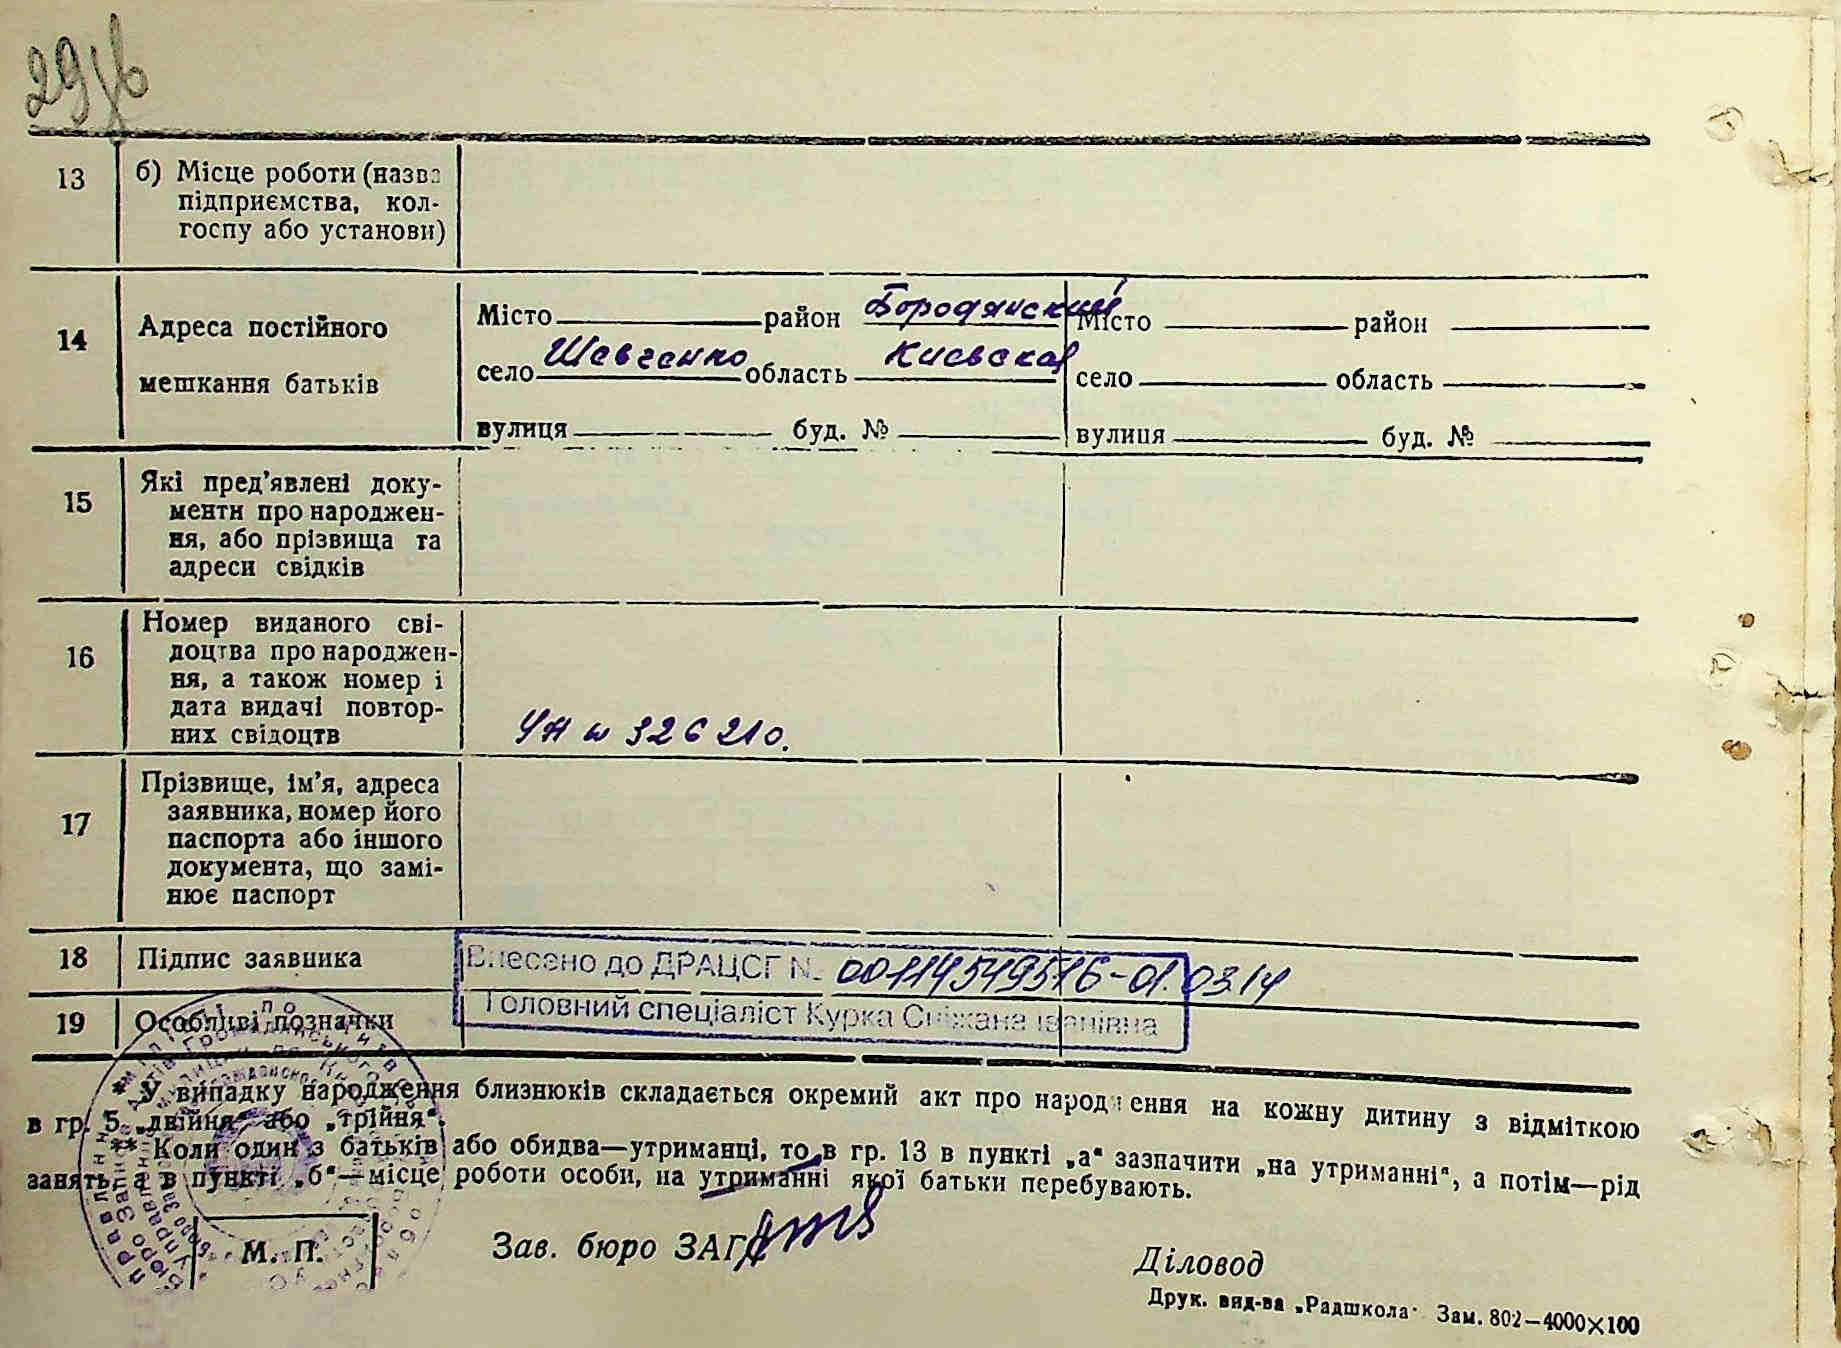 29
13 б) Місце роботи (назва
підприємства, кол-
госпу або установи)
14 Адреса постійного
мешкання батьків
Місто район Бородянский
село Шевченко область Киевская
вулиця буд. №
Місто район
село область
вулиця буд. №
15 Які пред'явлені доку-
менти про народжен-
ня, або прізвища та
адреси свідків
16 Номер виданого сві-
доцтва про народжен-
ня, а також номер і
дата видачі повтор-
них свідоцтв
УН № 326210.
17 Прізвище, ім'я, адреса
заявника, номер його
паспорта або іншого
документа, що замі-
нює паспорт
18 Підпис заявника
Внесено до ДРАЦСГ № 00114549516-01.03.14
Головний спеціаліст Курка Сніжана Іванівна
19 Особливі позначки
* У випадку народження близнюків складається окремий акт про народження на кожну дитину з відміткою
в гр. 5 „двійня" або „трійня".
** Коли один з батьків або обидва—утриманці, то в гр. 13 в пункті „а" зазначити „на утриманні", а потім—рід
занять, а в пункті „б"—місце роботи особи, на утриманні якої батьки перебувають.
М. П.
Зав. бюро ЗАГС
Діловод
Друк. вид-ва „Радшкола" Зам. 802—4000×100